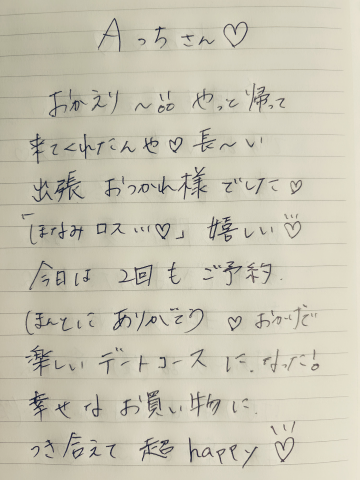 Aっちさん♡
おかえり〜!! やっと帰って
来てくれたんや♡ 長〜い
出張 おつかれ様でした♡
「ほなみロス…♡」 嬉しい♡
今日は 2回も ご予約
ほんとに ありがとう ♡ おかげで
楽しい デートコース に なった!!
幸せな お買い物に
つき合えて 超 happy♡